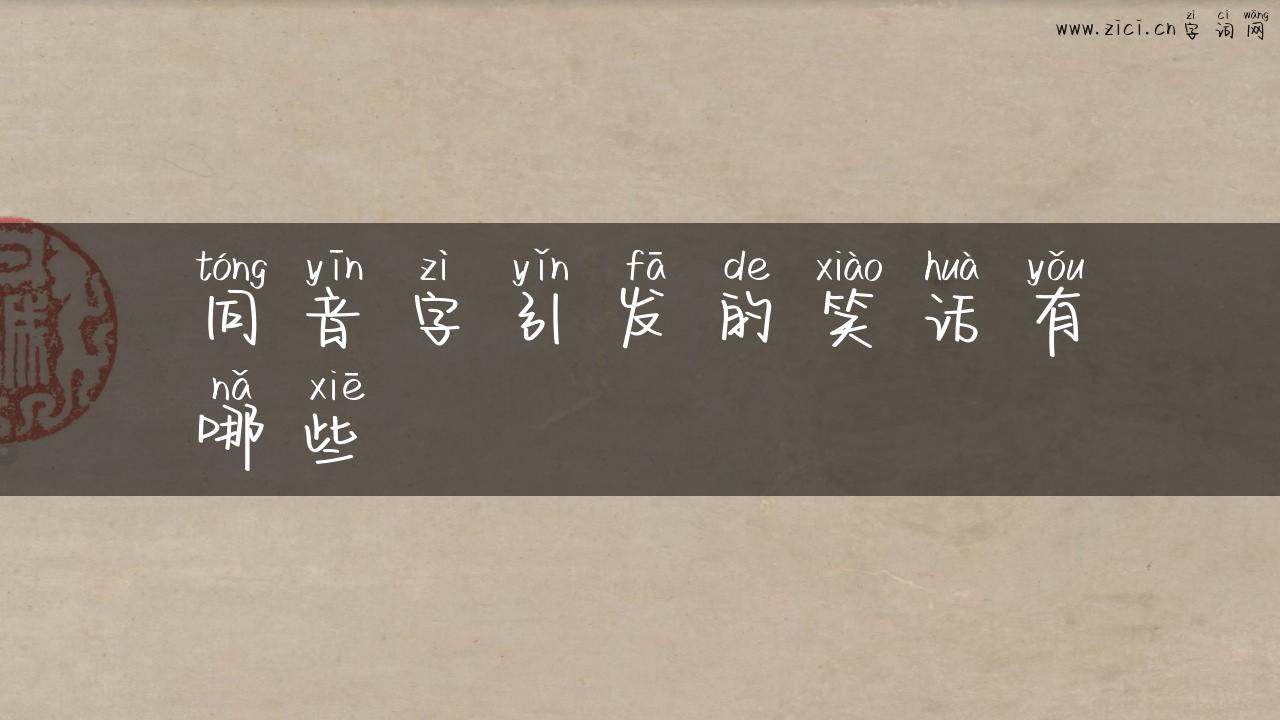 zì cí wǎng
www.zici.cn 字词网
tóng yīn zì yǐn fā de xiào huà yǒu
同音字引发的笑话有
nǎ xiē
哪些